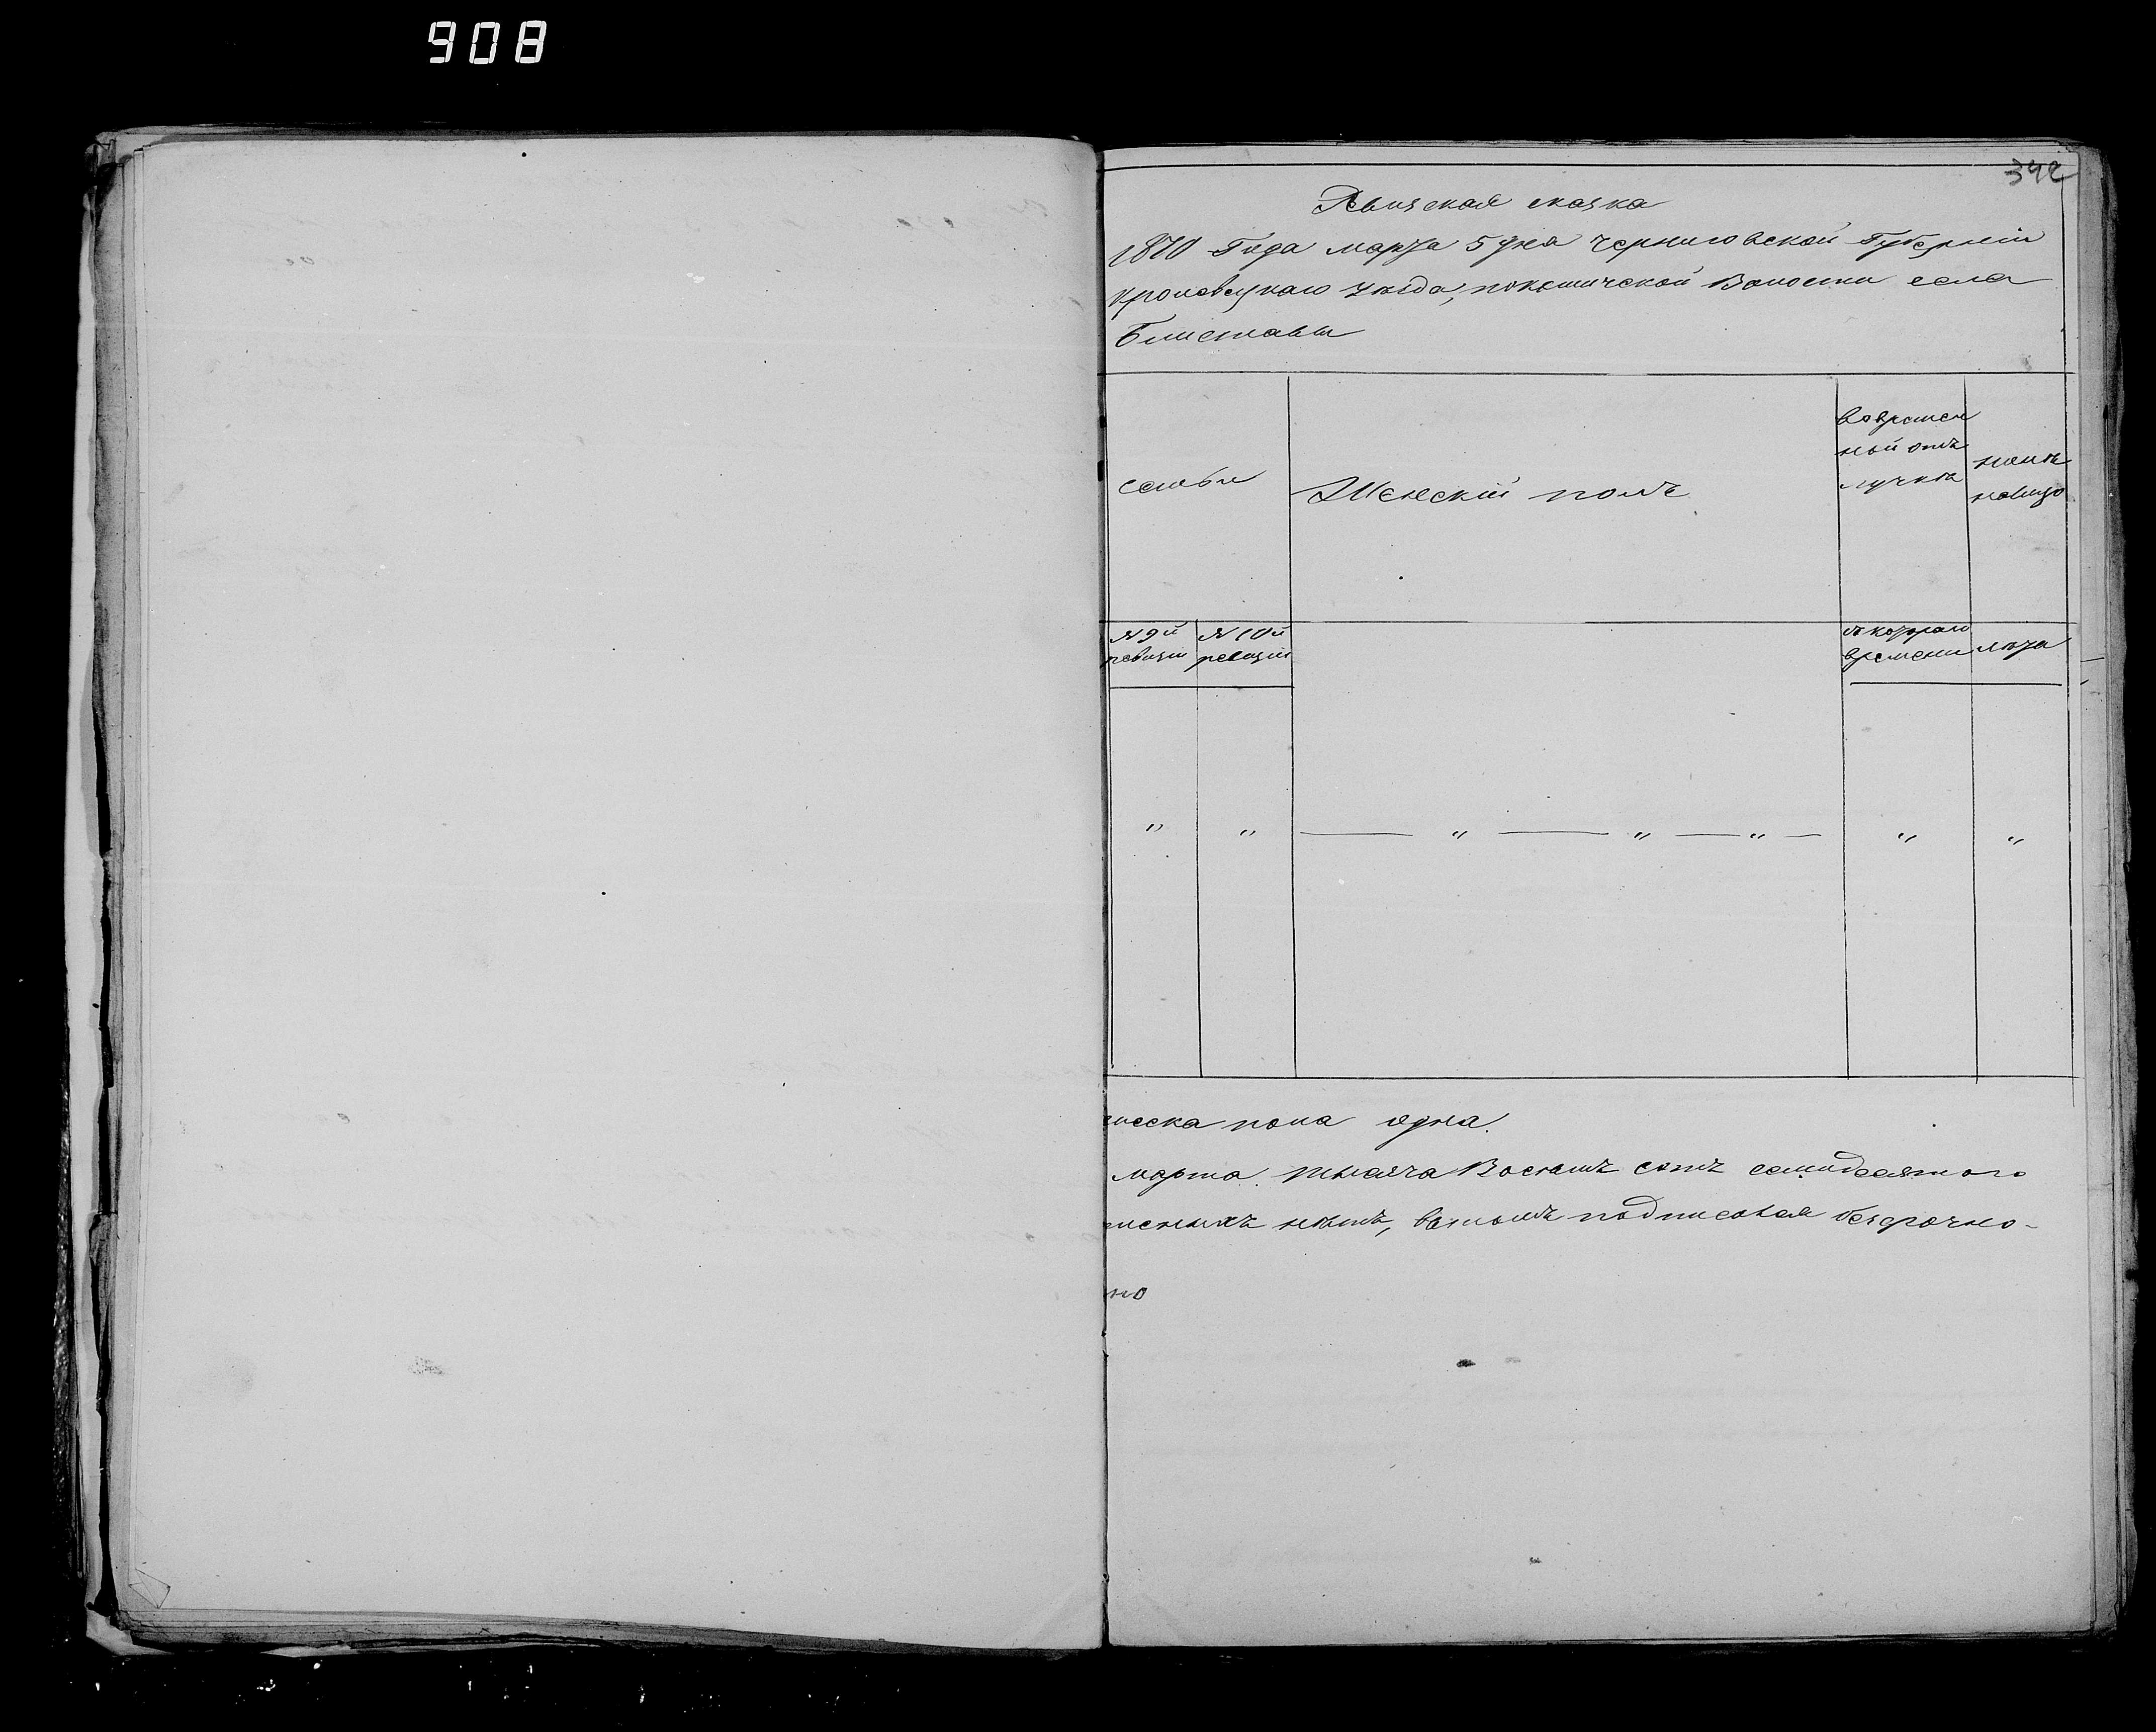 908
342
Ревизская сказка
1870 Года марта 5 дня Черниговской Губерніи
кролевецкаго уѣзда, покошичской Волости села
Блиставы
семьи
Женскій полъ
вовремен
ной отъ
лучкѣ
нынѣ
налицо
№ 9й
ревизіи
№ 10й
ревизіи
съ котораго
времени
лѣта
" " — " — " — " — " "
неска пола одна.
марта. тысяча Восемь сотъ семидесятого
писныхъ нѣтъ, вчемъ подписался безсрочно-
но